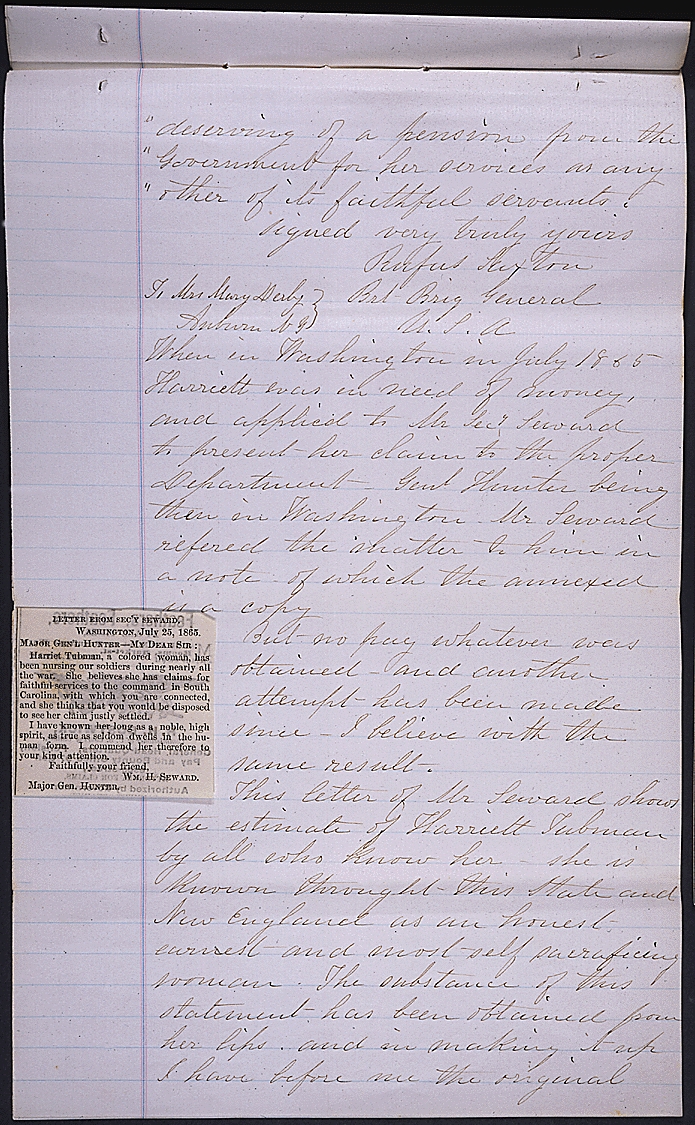 " deserving of a pension from the
" Government for her services as any
" other of its faithful servants."
signed very truly yours
Rufus Saxton
To Mrs Mary Derby } Bvt Brig General
Auburn N.Y } U. S. A
When in Washington in July 1865
Harriett was in need of money,
and applied to Mr Secy Seward
to present her claim to the proper
Department - Genl Hunter being
then in Washington Mr Seward
refered the matter to him in
a note of which the annexed
is a copy
LETTER FROM SEC'Y SEWARD.
WASHINGTON, July 25, 1865.
MAJOR GEN'L HUNTER—MY DEAR SIR:
Harriet Tubman, a colored woman, has
been nursing our soldiers during nearly all
the war. She believes she has claims for
faithful services to the command in South
Carolina, with which you are connected,
and she thinks that you would be disposed
to see her claim justly settled.
I have known her long as a noble, high
spirit, as true as seldom dwells in the hu-
man form. I commend her therefore to
your kind attention.
Faithfully your friend,
WM. H. SEWARD.
Major Gen. HUNTER.
But no pay whatever was
obtained - and another
attempt has been made
since - I believe with the
same result.
This letter of Mr Seward shows
the estimate of Harriett Tubman
by all who know her - she is
known throught this State and
New England as an honest
earnest and most self sacraficing
woman. The substance of this
statement has been obtained from
her lips. and in making it up
I have before me the original